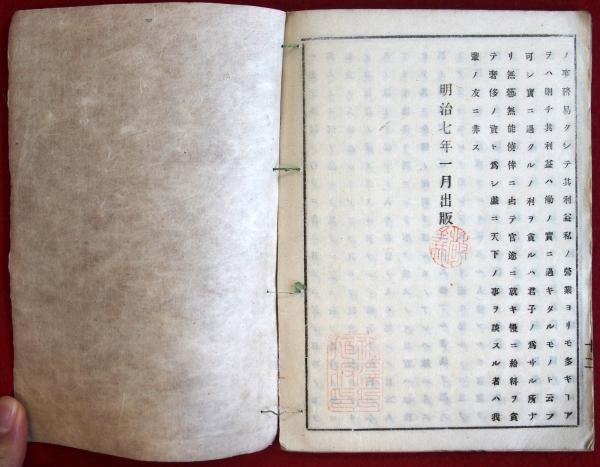 ノ事務易クシテ其利益私ノ營業ヨリモ多キ﹁ア
ラハ則チ其利益ハ働ノ實ニ過キタルモノト云フ
可シ實ニ過クルノ利ヲ貪ルハ君子ノ爲サル所ナ
リ無藝無能僥倖ニ由テ官途ニ就キ慢ニ給料ヲ貪
テ奢侈ノ資ト爲シ戯ニ天下ノ事ヲ談スル者ハ我
輩ノ友ニ非ス
明治七年一月出版
十二